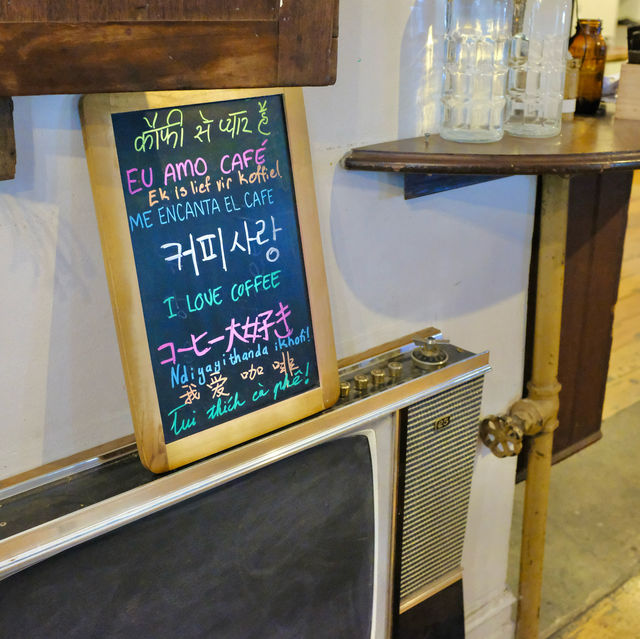 कॉफी से प्यार है
EU AMO CAFÉ
Ek is lief vir koffie!
ME ENCANTA EL CAFE
커피사랑
I LOVE COFFEE
コーヒー大好き
Ndiyayithanda ikhofi!
我爱咖啡
Tui thích cà phê!